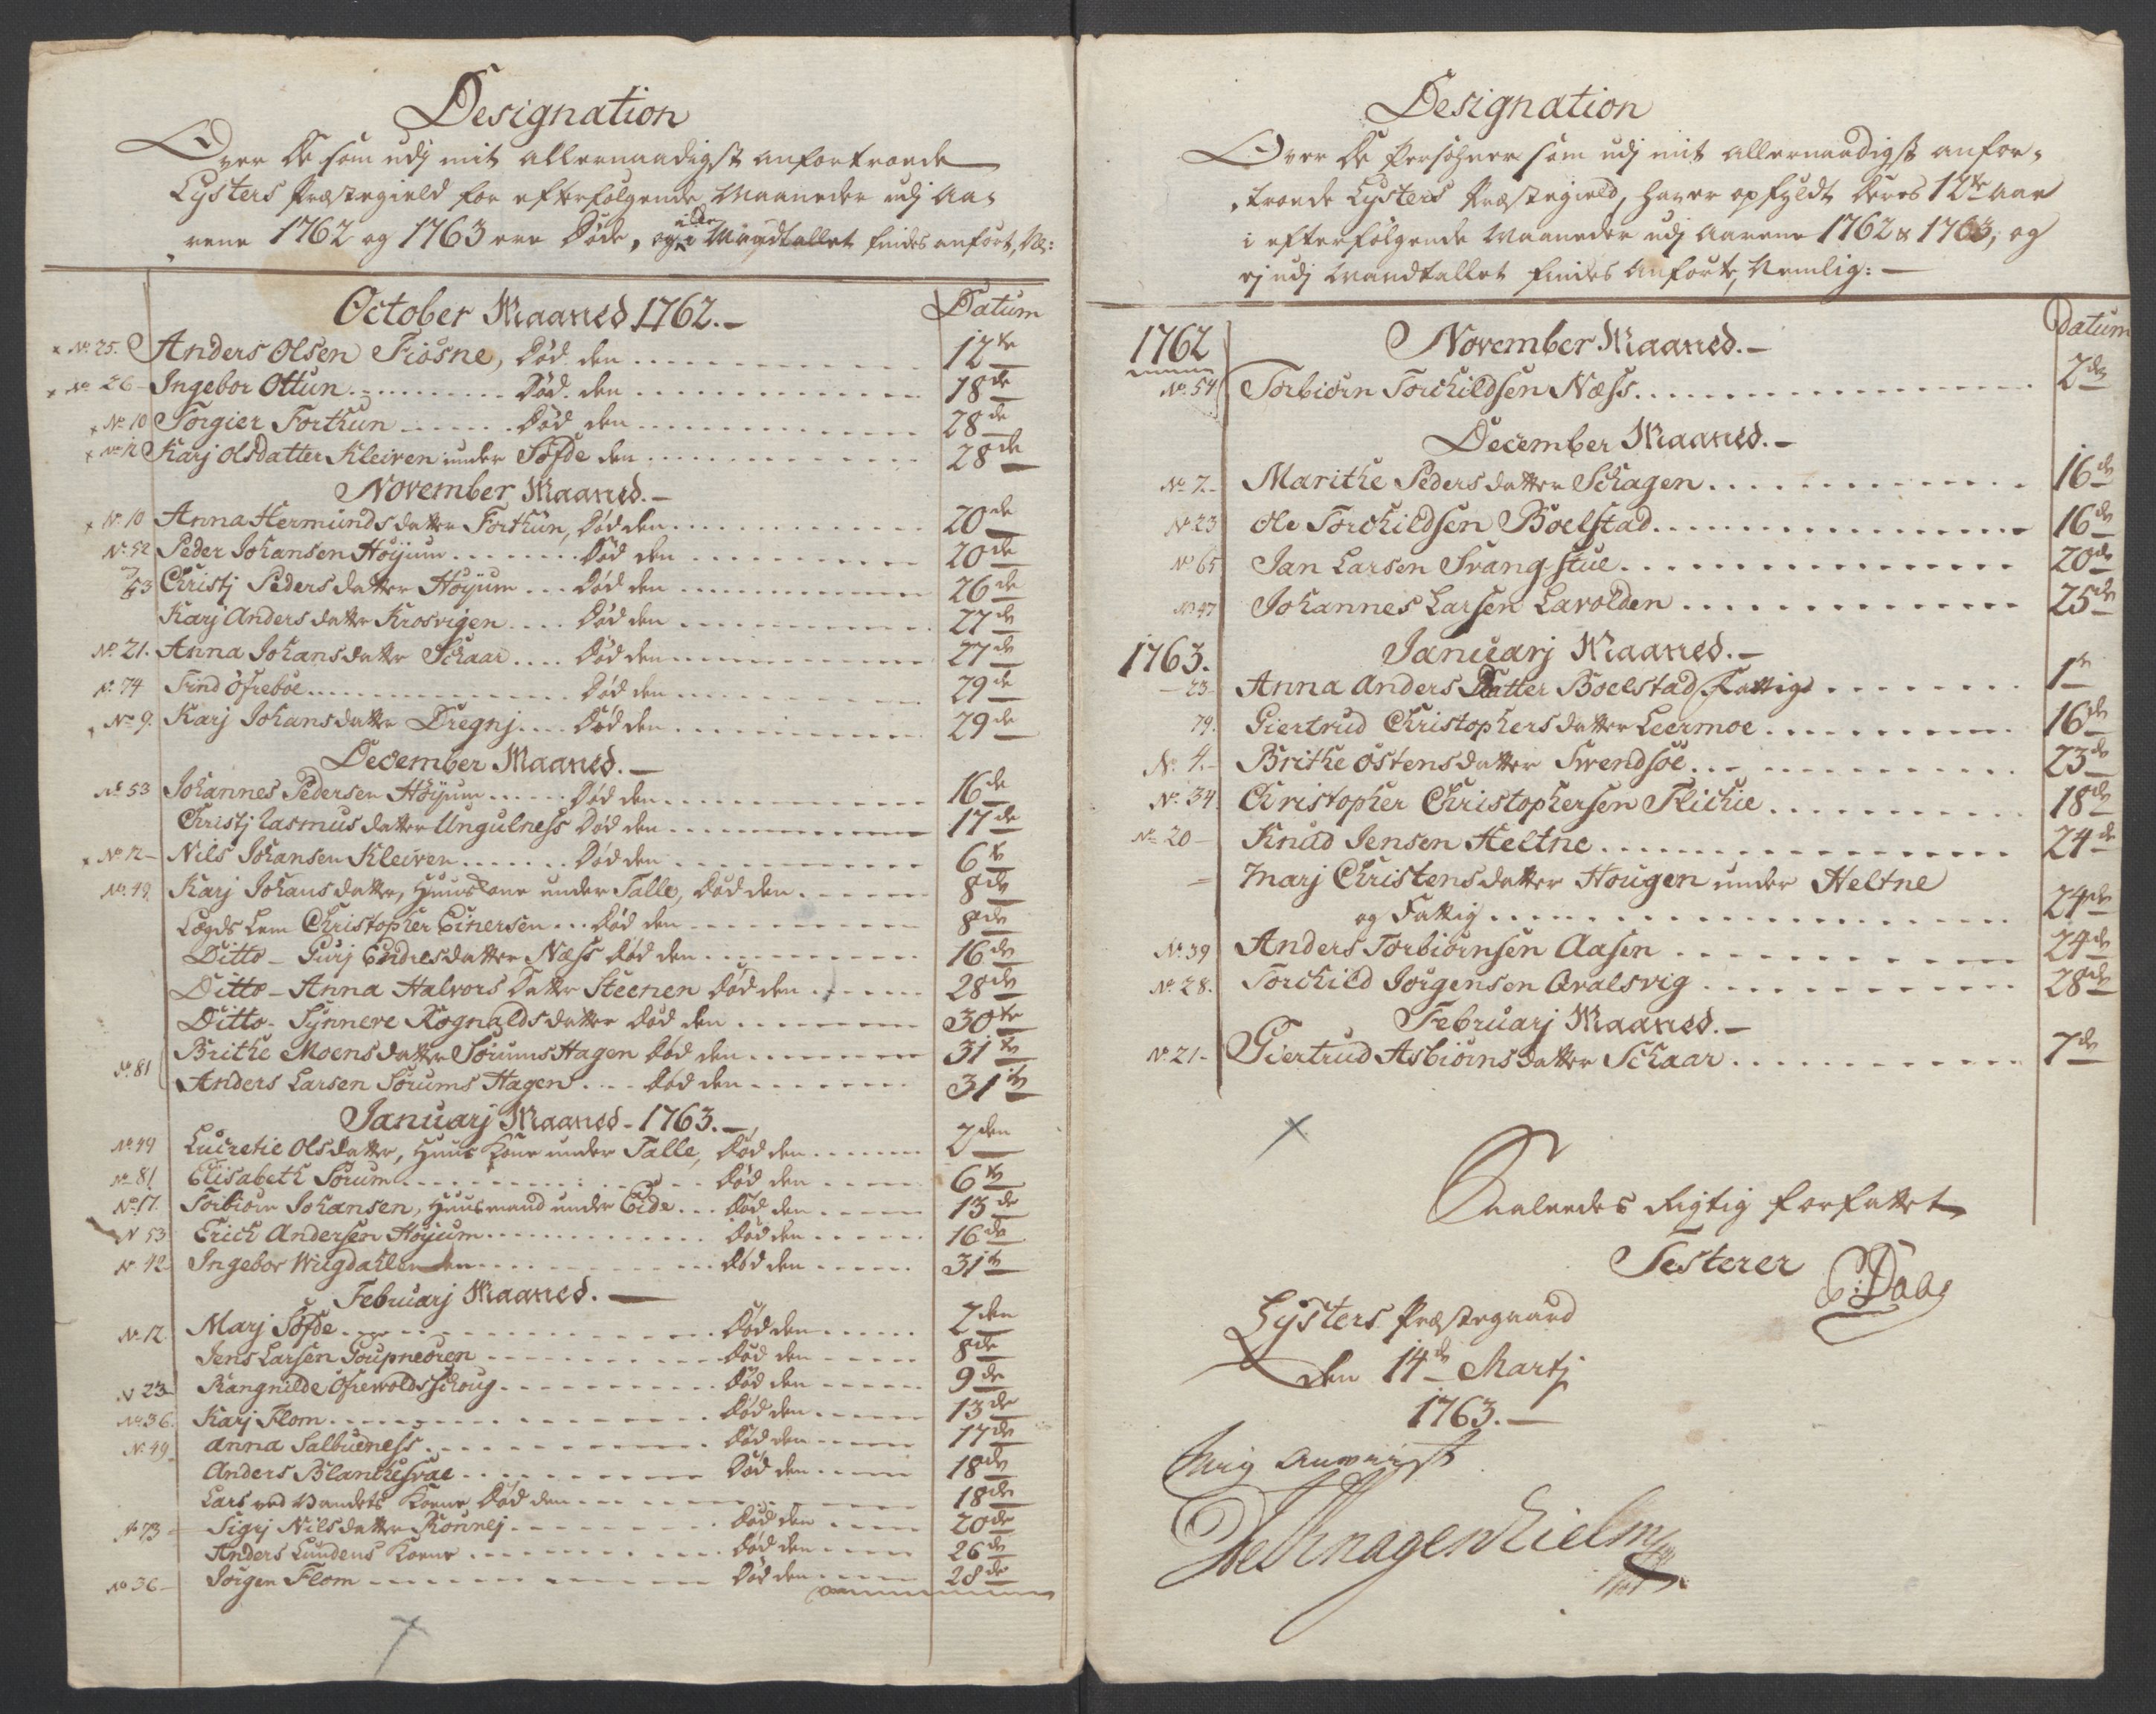 Designation
Over De som udj mit allernaadigst anfortroede
Lysters Præstegield for efterfølgende Maaneder udj Aa-
rene 1762 og 1763 ere Døde, og i Mandtallet findes anført, Nl:
October Maaned 1762.- Datum
No. 25. Anders Olsen Fiøsne, Død den 12te
No. 26 Ingebor Ottun Død den 18de
No. 10 Torgier Forthun Død den 28de
No. 12 Karj Olsdatter Kleiven under Søfde den 28de
November Maaned.-
No. 10 Anna Hermundsdatter Forthun, Død den 20de
No. 52 Peder Johansen Høijum Død den 20de
53 Christj Pedersdatter Høijum Død den 26de
Karj Andersdatter Krosvigen Død den 27de
No. 21. Anna Johansdatter Schaar Død den 27de
No. 74 Find Ófreboe Død den 29de
No. 9. Karj Johansdatter Dregnj Død den 29de
December Maaned.-
No. 53 Johannes Pedersen Høijum Død den 16de
Christj Rasmusdatter Ungulness Død den 17de
No. 12 Nils Johansen Kleiven Død den 6te
No. 49 Karj Johansdatter, Huuskone under Talle, Død den 8de
Lægds Lem Christopher Einersen Død den 8de
Ditto - Gurj Endresdatter Næss Død den 16de
Ditto - Anna Halvors Datter Steenen Død den 28de
Ditto - Synneve Rognaldsdatter Død den 30te
No. 81 Brithe Moensdatter Sørums Hagen Død den 31te
Anders Larsen Sørums Hagen Død den 31te
Januarj Maaned - 1763.-
No. 49 Lucretie Olsdatter, Huus Kone under Talle, Død den 2den
No. 81 Elisabeth Sørum Død den 6te
No. 17. Torbiørn Johansen, Huusmand under Eide Død den 13de
N 53 Erich Andersen Høijum Død den 16de
No. 42 Ingebor Wiigdahlen Død den 31te
Februarj Maaned.
No. 12 Marj Søfde Død den 2den
Jens Larsen Goupneøren Død den 8de
N 23 Rangnilde Død den 9de
No. 36. Karj Flom Død den 13de
No. 49 Anna Salbueness Død den 17de
Anders Blanchesvae Død den 18de
Lars ved Vandets Kone Død den 18de
No. 73 Sigrj Nilsdatter Rønnej Død den 20de
Anders Lundens Kone Død den 26de
No. 36 Jørgen Flom Død den 28de
Designation
Over De Persohner som udj mit allernaadigst anfor-
troede Lysters Præstegield, haver opfyldt Deres 12te Aar
i efterfølgende Maaneder udj Aarene 1762 & 1763, og
ej udj Mandtallet findes Anførte, Nemlig:-
1762 November Maaned.- Datum
No. 54 Torbiørn Torchildsen Næss 2den
December Maaned.-
No. 7 Marithe Pedersdatter Schagen 16de
No. 23 Ole Torchildsen Boelstad 16de
No 65 Jan Larsen Svangstue 20de
No 47 Johannes Larsen Lavolden 25de
1763. Januarj Maaned.-
23 Anna Anders Datter Boelstad Fattig 1te
79. Giertrud Christophersdatter Leermoe 16de
No. 4. Brithe Østensdatter Svendsøe 23de
No. 34 Christopher Christophersen Flichie 18de
No. 20 Knud Jensen Heltne 24de
Marj Christensdatter Hougen under Heltne
og Fattig 24de
No. 39 Anders Torbiørnsen Aasen 24de
No. 28. Torchild Jørgensen Qvalsvig 28de
Februarj Maaned.-
No. 21 Giertrud Asbiørnsdatter Schaar 7de
Saaledes Rigtig forfattet
Testerer
Lysters Præstegaard
Den 14de Martj
1763.-